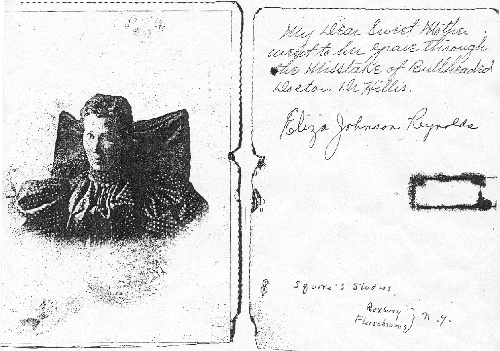 My Dear Sweet Mother
went to her grave through
the Misstake of Bullheaded
Doctor. Dr Hillis.
Eliza Johnson Reynolds
Squire's Studios
Roxbury
N. Y.